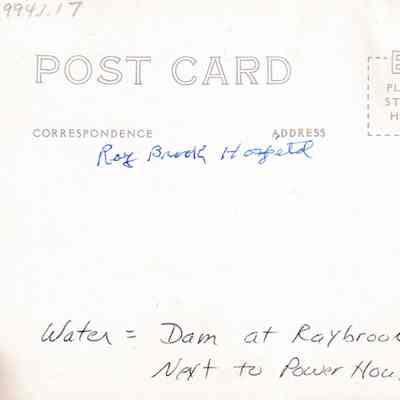 994J.17
POST CARD
PL
ST
H
CORRESPONDENCE ADDRESS
Ray Brook Hospetal
Water = Dam at Raybrook
Next to Power Hou